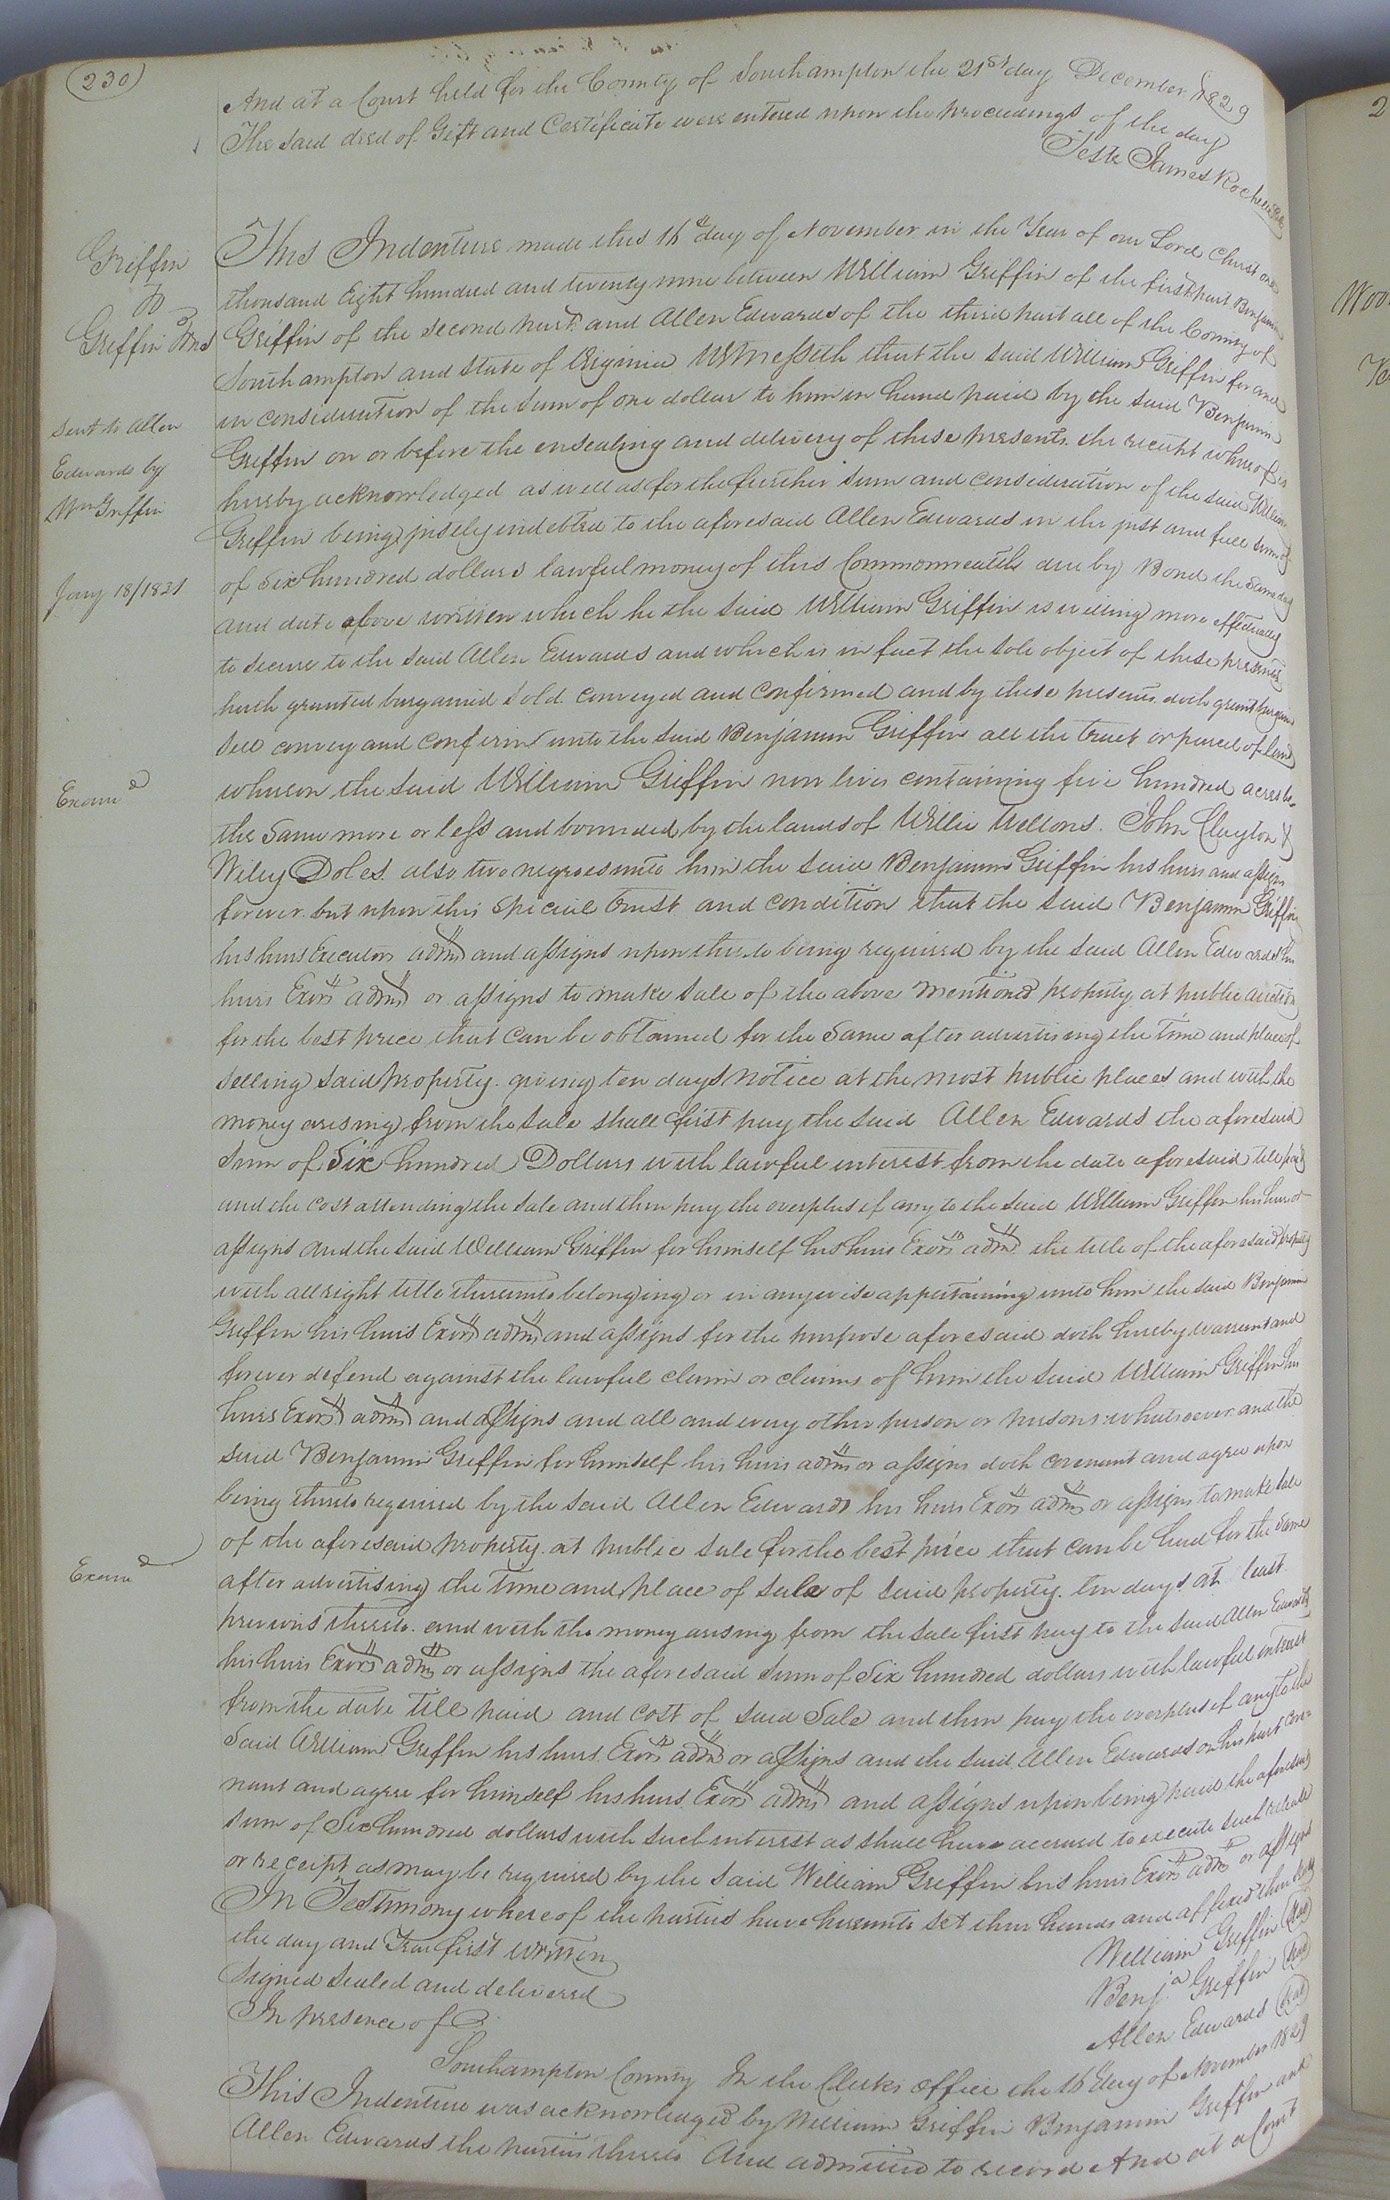 230
And at a Court held for the County of Southampton the 21st day December 1829
The said deed of Gift and Certificate were entered upon the proceedings of the day
Teste James Rochelle
Griffin
to
Griffin
Sent to Allen
Edwards by
Wm Griffin
Jany 18/1831
Examd
Examd
This Indenture made this 16th day of November in the Year of our Lord Christ one
thousand Eight hundred and twenty nine between William Griffin of the first part Benjamin
Griffin of the second part and Allen Edwards of the third part all of the County of
Southampton and State of Virginia Witnesseth that the said William Griffin for and
in consideration of the sum of one dollar to him in hand paid by the said Benjamin
Griffin on or before the ensealing and delivery of these presents the receipt whereof is
hereby acknowledged as well as for the further sum and consideration of the said William
Griffin being justly indebted to the aforesaid Allen Edwards in the just and full sum of
of Six hundred dollars lawful money of this Commonwealth due by Bond the same day
and date above written which he the said William Griffin is willing more effectually
to secure to the said Allen Edwards and which is in fact the sole object of these presents
hath granted bargained sold conveyed and confirmed and by these presents doth grant bargain
sell convey and confirm unto the said Benjamin Griffin all the tract or parcel of land
whereon the said William Griffin now lives containing five hundred acres be
the same more or less and bounded by the lands of Willie Wellons. John Clayton &
Wiley Doles. also two negroes unto him the said Benjamin Griffin his heirs and assigns
forever. but upon this special trust and condition that the said Benjamin Griffin
his heirs Executors admrs and assigns upon thereto being required by the said Allen Edwards his
heirs Exors admrs or assigns to make sale of the above mentioned property at public auction
for the best price that can be obtained for the same after advertising the time and place of
selling said property. giving ten days notice at the most public places and with the
money arising from the sale shall first pay the said Allen Edwards the aforesaid
sum of Six hundred Dollars with lawful interest from the date aforesaid till paid
and the cost attending the sale and then pay the overplus if any to the said William Griffin his heirs or
assigns and the said William Griffin for himself his heirs Exors admrs the title of the aforesaid property
with all right title thereunto belonging or in anywise appertaining unto him the said Benjamin
Griffin his heirs Exors admrs and assigns for the purpose aforesaid doth hereby warrant and
forever defend against the lawful claim or claims of him the said William Griffin his
heirs Exors admrs and assigns and all and every other person or persons whatsoever and the
said Benjamin Griffin for himself his heirs admrs or assigns doth covenant and agree upon
being thereto required by the said Allen Edwards his heirs Exors admrs or assigns to make sale
of the aforesaid property. at public sale for the best price that can be had for the same
after advertising the time and place of sale of said property. ten days. at least
previous thereto. and with the money arising from the sale first pay to the said Allen Edwards
his heirs Exors admrs or assigns the aforesaid sum of Six hundred dollars with lawful interest
from the date till paid and cost of said Sale and then pay the overplus if any to the
Said William Griffin his heirs. Exors admrs or assigns and the said Allen Edwards on his part cove=
nant and agree for himself his heirs Exors admrs and assigns upon being paid the aforesaid
sum of Six hundred dollars with such interest as shall have accrued to execute such release
or receipt as may be required by the said William Griffin his heirs Exors admrs or assigns
In Testimony whereof the parties have hereunto set their hands and affixed their seals
the day and Year first written
Signed sealed and delivered
In presence of
William Griffin (seal)
Benja Griffin (seal)
Allen Edwards (seal)
Southampton County In the Clerks office the 16 day of November 1829
This Indenture was acknowledged by William Griffin Benjamin Griffin and
Allen Edwards the parties thereto And admitted to record And at a Court